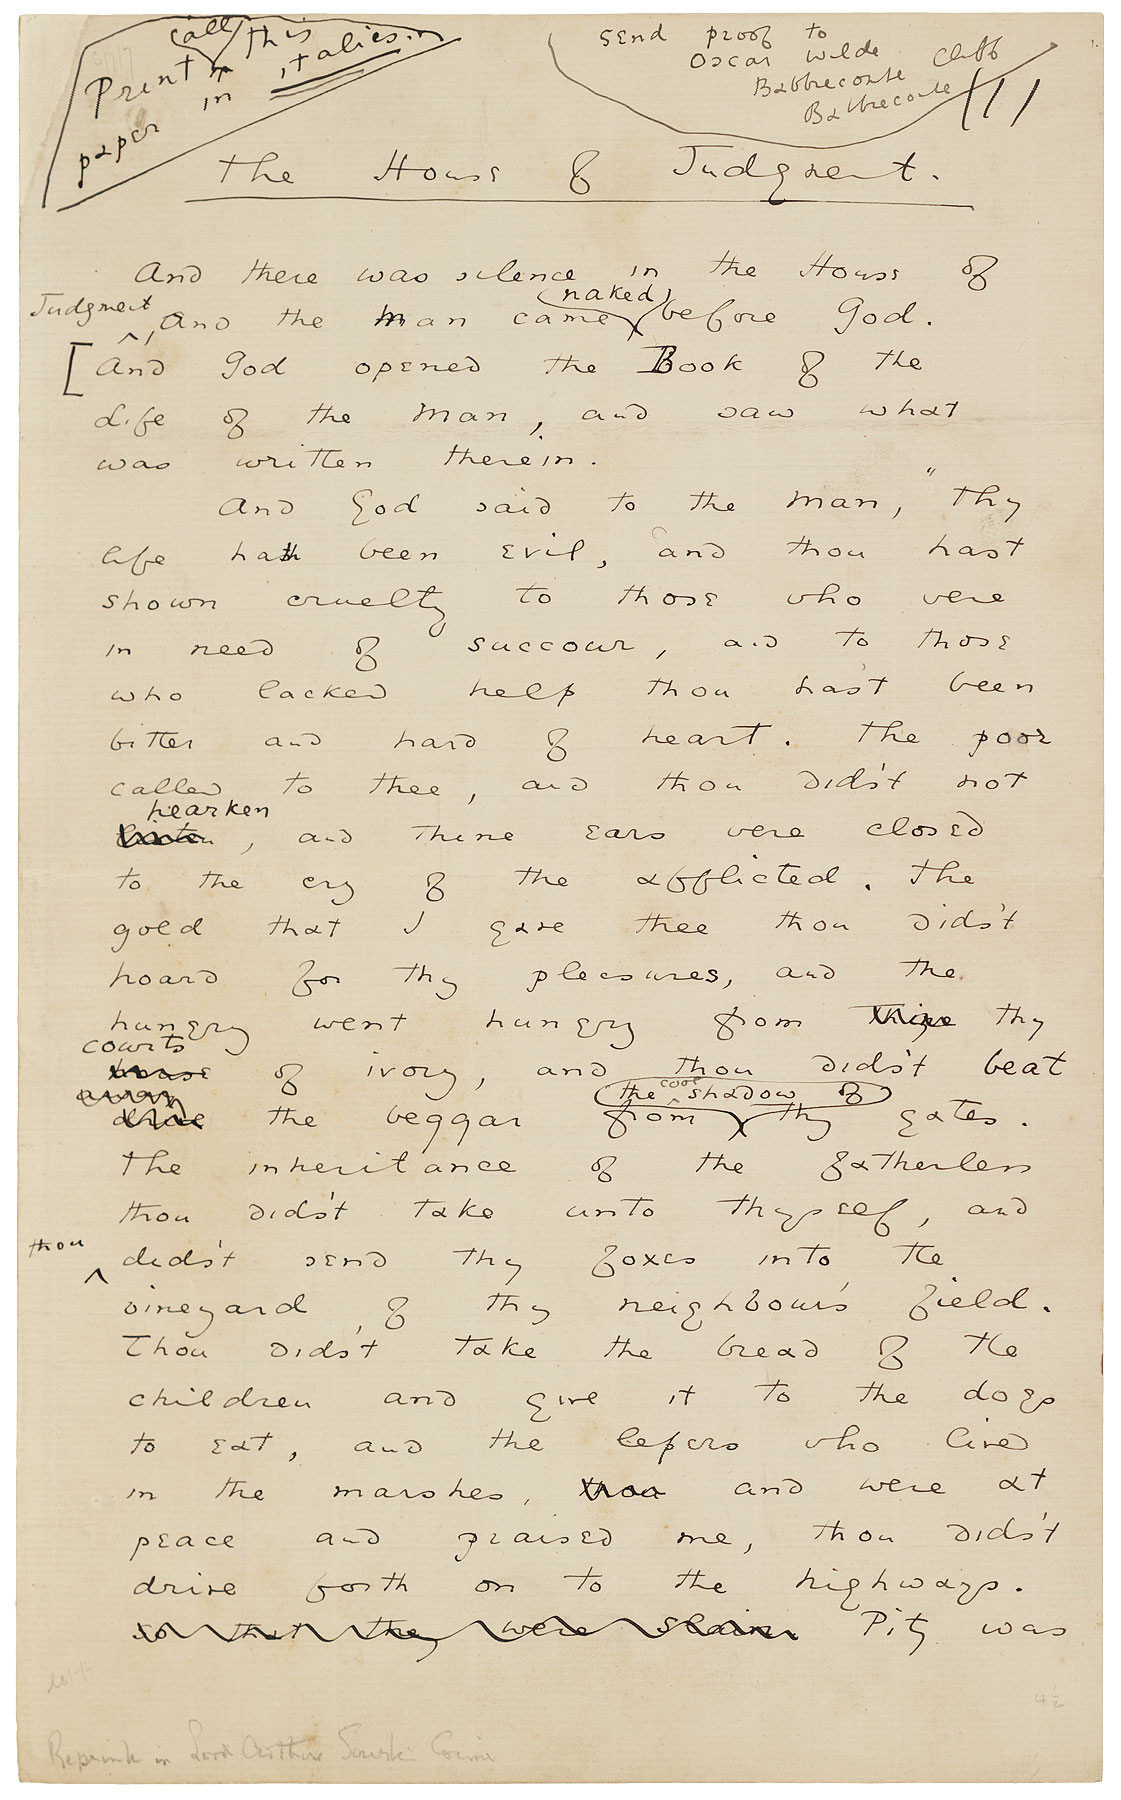 Print all this
paper in italics.
send proof to
Oscar Wilde
Babbacombe Cliff
Babbacombe
The House of Judgment.
And there was silence in the House of
Judgment, And the Man came naked before God.
[And God opened the Book of the
Life of the Man, and saw what
was written therein.
And God said to the Man, "Thy
life hath been evil, and thou hast
shown cruelty to those who were
in need of succour, and to those
who lacked help thou has't been
bitter and hard of heart. The poor
called to thee, and thou did's't not
hearken
listen, and thine ears were closed
to the cry of the afflicted. The
gold that I gave thee thou dids't
hoard for thy pleasures, and the
hungry went hungry from thine thy
courts
house of ivory, and thou dids't beat
away the cool shadow of
drive the beggar from thy gates.
The inheritance of the fatherless
thou dids't take unto thyself, and
thou dids't send thy foxes into the
vineyard of thy neighbour's field.
Thou dids't take the bread of the
children and give it to the dogs
to eat, and the lepers who lived
in the marshes, thou and were at
peace and praised me, thou dids't
drive forth on to the highways.
so that they were slain. Pity was
Reprinted in Lord Arthur Savile's Crime